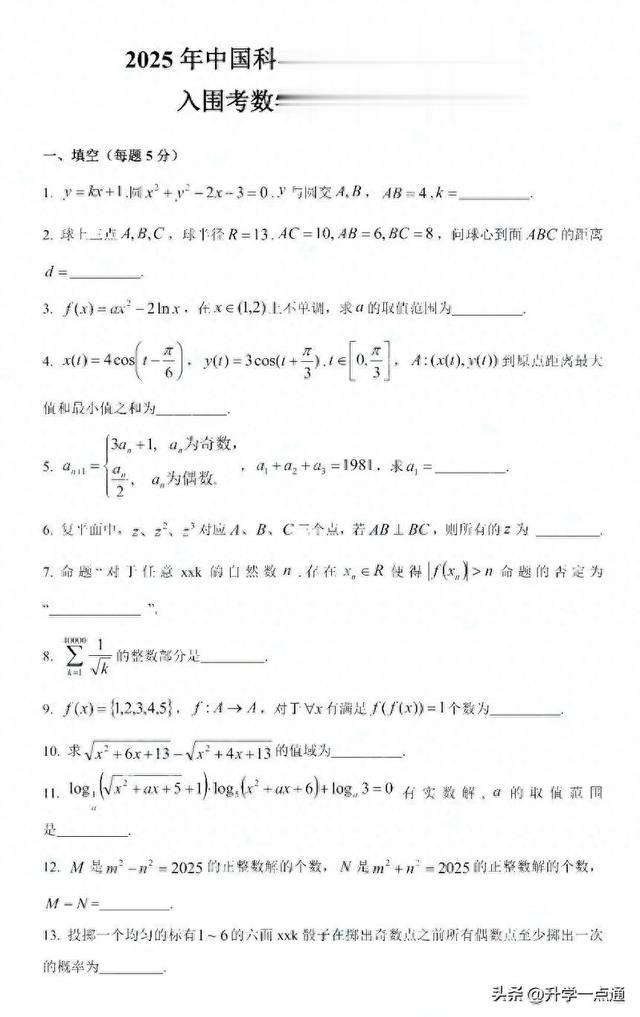 2025 年中国科
入围考数
一、填空（每题 5 分）
1. y = kx + 1 .圆 x² + y² − 2x − 3 = 0 . y 与圆交 A, B， AB = 4 , k = ________.
2. 球上三点 A, B, C ，球半径 R = 13 . AC = 10, AB = 6, BC = 8 ，问球心到面 ABC 的距离
d = ________.
3. f(x) = ax² − 2 ln x ，在 x ∈ (1,2) 上不单调，求 a 的取值范围为________.
4. x(t) = 4cos(t − π/6)， y(t) = 3cos(t + π/3) . t ∈ [0, π/3]， A : (x(t), y(t)) 到原点距离最大
值和最小值之和为________.
5. aₙ₊₁ = { 3aₙ + 1, aₙ为奇数, aₙ/2, aₙ为偶数. ，a₁ + a₂ + a₃ = 1981．求 a₁ = ________.
6. 复平面中，z、z²、z³ 对应 A、B、C 三个点，若 AB ⊥ BC，则所有的 z 为 ________.
7. 命题“对于任意 xxk 的自然数 n .存在 xₙ ∈ R 使得 |f(xₙ)| > n 命题的否定为
“________ ”.
8. ∑_{k=1}^{40000} 1/√k 的整数部分是________.
9. f(x) = {1,2,3,4,5}，f : A → A．对于 ∀x 有满足 f(f(x)) = 1 个数为________.
10. 求 √(x² + 6x + 13) − √(x² + 4x + 13) 的值域为________.
11. log_{1/a}(√(x² + ax + 5) + 1)·log₅(x² + ax + 6) + logₐ 3 = 0 有实数解、a 的取值范围
是________.
12. M 是 m² − n² = 2025 的正整数解的个数，N 是 m² + n² = 2025 的正整数解的个数，
M − N = ________.
13. 投掷一个均匀的标有 1 ~ 6 的六面 xxk 骰子在掷出奇数点之前所有偶数点至少掷出一次
的概率为________.
头条 @升学一点通